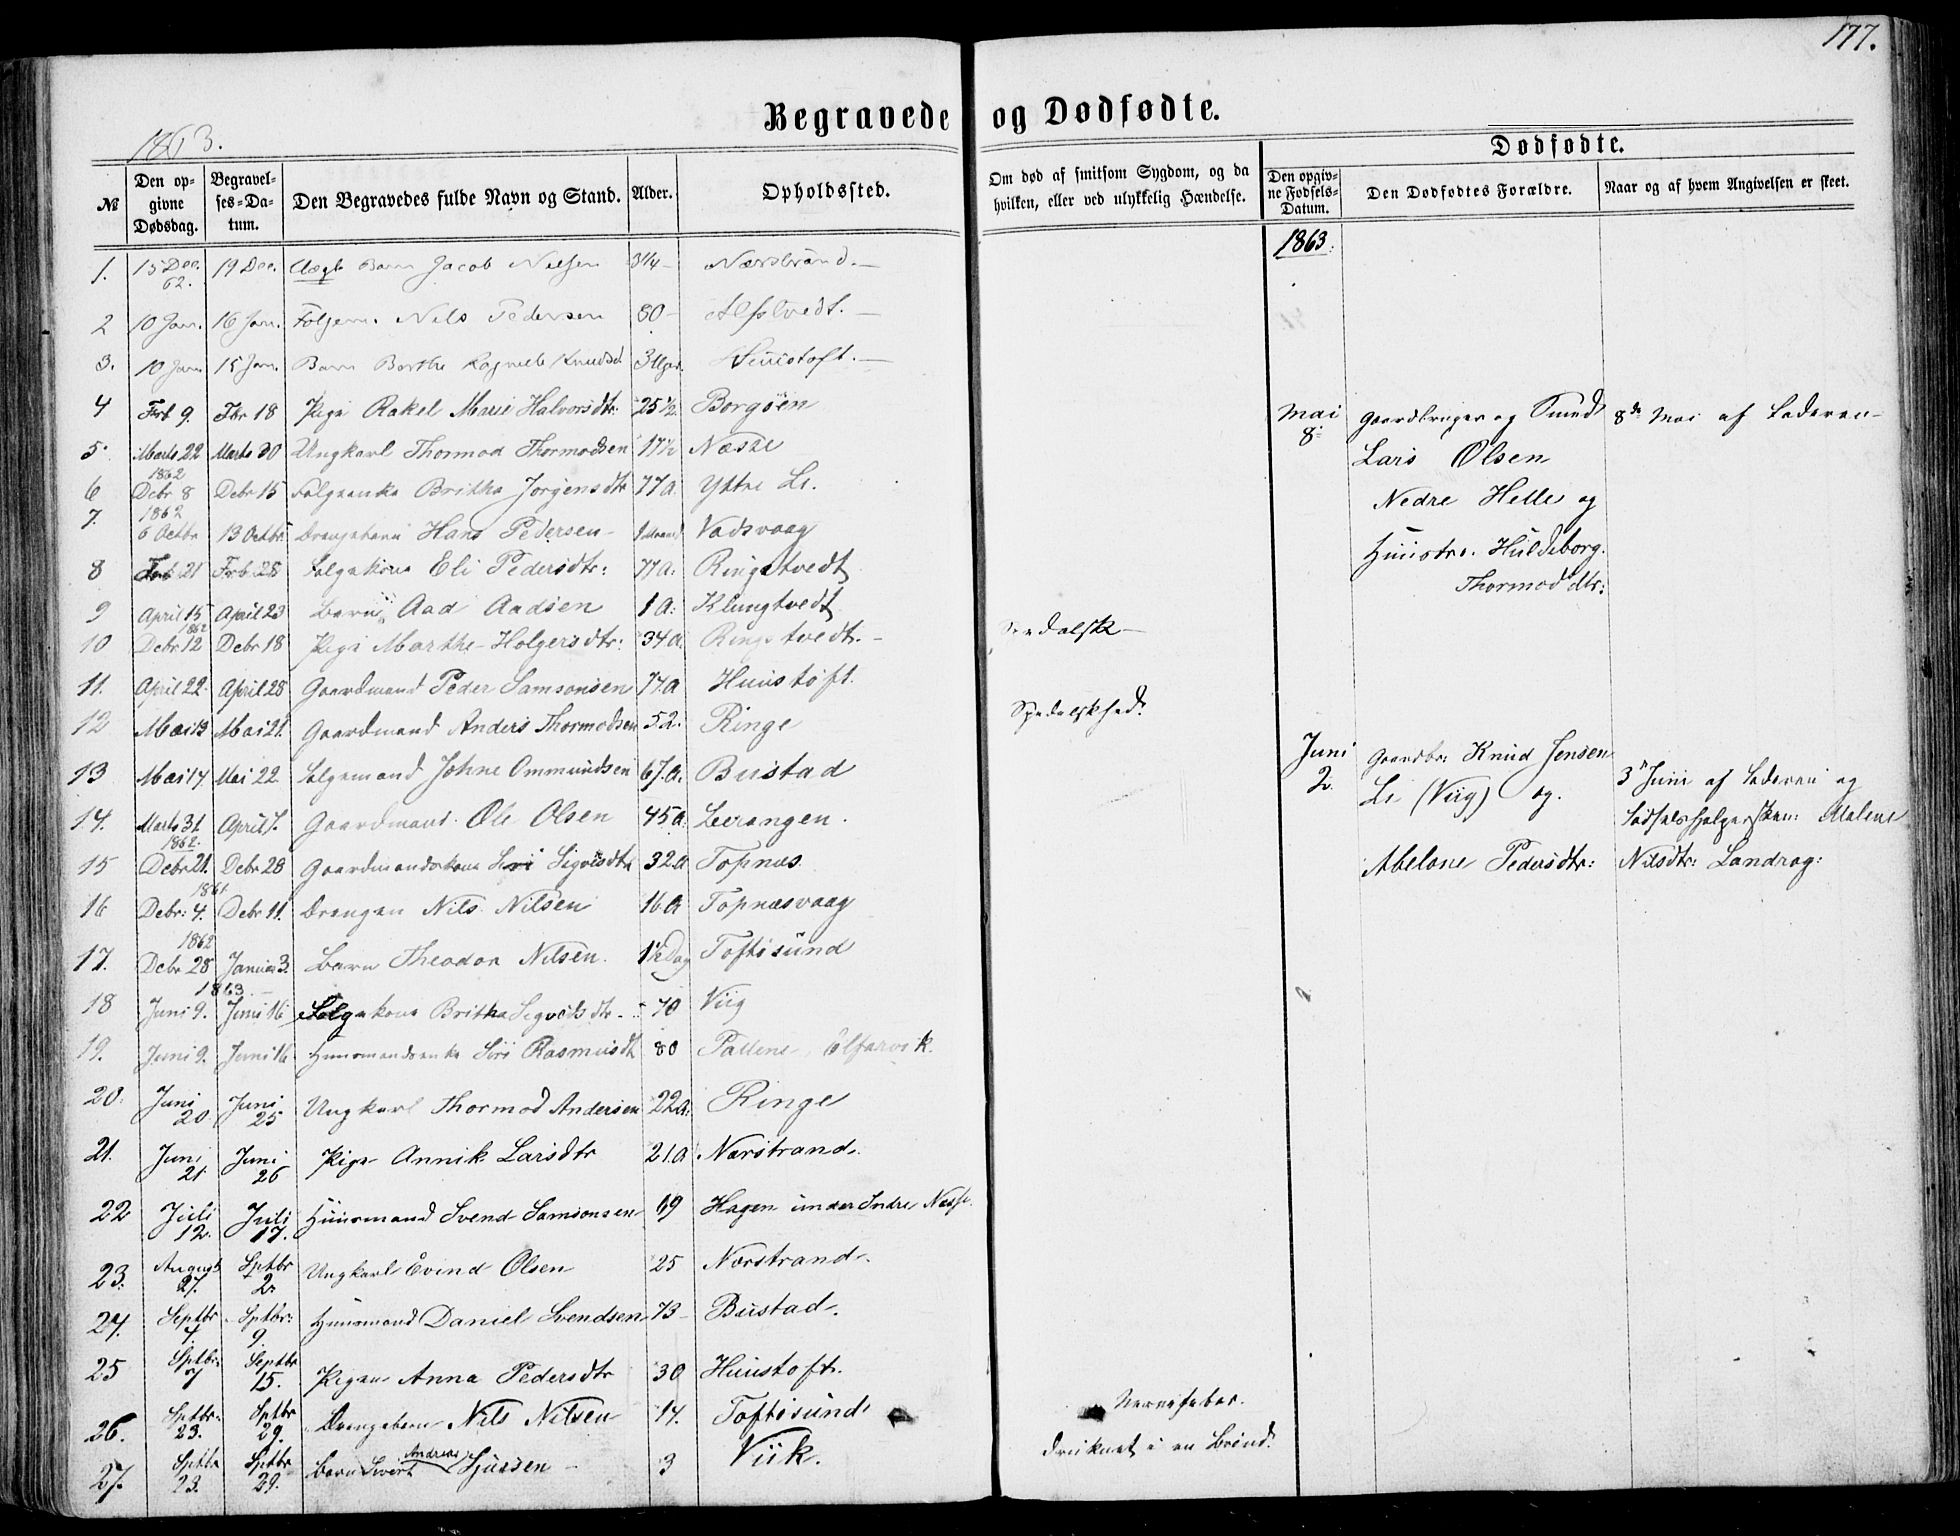 177.
Begravede og Dødfødte.
1863.
Dødfødte.
№ Den opgivne Dødsdag. Begravelses-Datum. Den Begravedes fulde Navn og Stand. Alder. Opholdssted. Om død af smitsom Sygdom, og da hvilken, eller ved ulykkelig Hændelse. Den opgivne Fødsels-Datum. Den Dødfødtes Forældre. Naar og af hvem Angivelsen er skeet.
1863.
1. 15 Dec. 62. 19 Dec. Barn Jacob Nielsen 3/4 Nærstrand.
2 10 Jan. 16 Jan. Følgem. Nils Pedersen 80 Alfstvedt.
3. 10 Jan. 15 Jan. Barn Berthe Knudsd. 3 Uger. Huustoft.
4 Febr 9. Fbr 18 Pige Rakel Marie Halvorsdtr. 25½ Borgøen
5. Marts 22 Marts 30 Ungkarl Thormod Thormodsen 17½ Næsse
6 1862 Debr 8 Debr 15 Følgeenke Britha Jørgensdtr 77 a. Yttre Li.
7. 1862 6 Octbr 13 Octbr. Drengebarn Hans Pedersen Vadsvaag
8 Feb 21 Feb 28 Følgekone Eli Pedersdtr: 77 a: Ringstvedt
9 April 15 April 23 Barn Aad Aadsen 1 a: Klungtvedt
10 1862 Debr 12 Debr 18 Pige Marthe Holgersdtr: 34 a Ringstvedt. Spedalsk
11. April 22. April 28 Gaardmand Peder Samsonsen 74. a Huustoft.
12 Mai 13 Mai 21. Gaardmand Anders Thormodsen 52. Ringe Spedalskhed.
13 Mai 14 Mai 22 Følgemand Johne Ommundsen 67. a. Bustad
14. Marts 31. April 7. Gaardmand Ole Olsen 45 a. Leerangen.
15 1862. Debr 21. Debr 28 Gaardmandskone Siri Sigvisdtr 32. a Topnæs.
16 1861 Debr: 4. Debr 11. Drengen Nils Nilsen 16. a Topnæsvaag
17. 1862 Debr 28 Januar 3. Barn Theodor Nilsen. 1½ Dag Toftøsund
18 1863 Juni 9. Juni 16 Følgekone Britha Sigvalsdtr. 70 Viig
19. Juni 9. Juni 16 Huusmandsenke Siri Rasmusdt 80 Pallene,Ølfarvik.
20. Juni 20 Juni 25 Ungkarl Thormod Andersen 22 a: Ringe
21. Juni 21. Juni 26 Pige Annik Larsdtr 21. a Nærstrand.
22 Juli 12. Juli 17. Huusmand Svend Samsonsen 69 Hagen under Indre Næsse.
23. August 27. Sptbr 2. Ungkarl Evind Olsen 25 Nærstrand.
24. Septbr 4. Sptbr: 9. Huusmand Daniel Svendsen 73 Bustad.
25 Sptbr. 7 Septbr 15. Pigen Anna Pedersdtr 30 Huustoft.
26. Sptbr. 23. Sptbr 29. Drengebarn Nils Nilsen 14. Toftøsund Nervefeber.
27. Sptbr 23. Sptbr 29. Barn Sivert Andreas Sjursen 3 Viik. druknet i en Brønd.
Mai 8. Gaardbruger og Smed
Lars Olsen
Nedre Helle og
Huustro. Huldeborg.
Thormodsdtr:
8de Mai af Faderen
Juni 2. Gaardbr: Knud Jensen
Li (Viig) og.
Abelone Pedersdtr:
3 Juni af Faderen og
Fødselshjelpersken: Malene
Nilsdtr: Landrog: